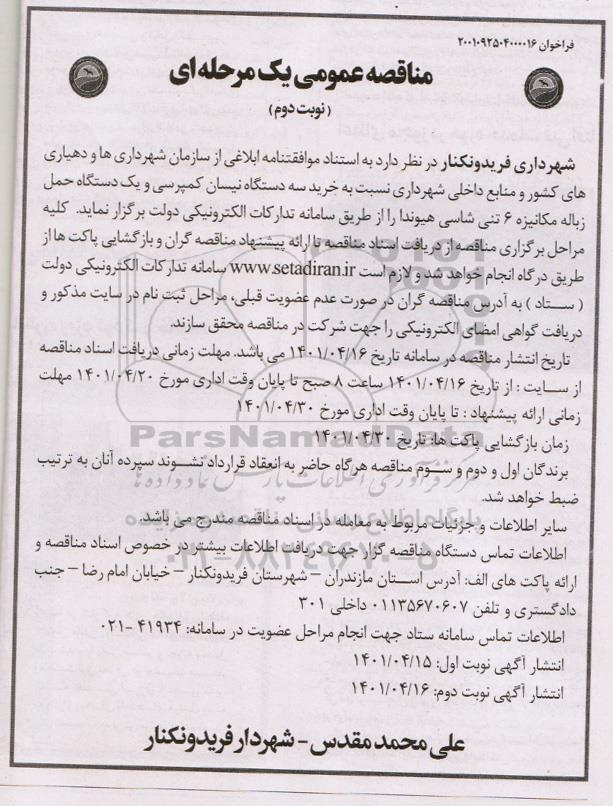 فراخوان ۲۰۰۱۰۹۲۵۰۴۰۰۰۰۱۶
مناقصه عمومی یک مرحله ای
(نوبت دوم)
شهرداری فریدونکنار در نظر دارد به استناد موافقتنامه ابلاغی از سازمان شهرداری ها و دهیاری
های کشور و منابع داخلی شهرداری نسبت به خرید سه دستگاه نیسان کمپرسی و یک دستگاه حمل
زباله مکانیزه ۶ تنی شاسی هیوندا را از طریق سامانه تدارکات الکترونیکی دولت برگزار نماید. کلیه
مراحل برگزاری مناقصه از دریافت اسناد مناقصه تا ارائه پیشنهاد مناقصه گران و بازگشایی پاکت ها از
طریق درگاه انجام خواهد شد و لازم است www.setadiran.ir سامانه تدارکات الکترونیکی دولت
( ستاد ) به آدرس مناقصه گران در صورت عدم عضویت قبلی، مراحل ثبت نام در سایت مذکور و
دریافت گواهی امضای الکترونیکی را جهت شرکت در مناقصه محقق سازند.
تاریخ انتشار مناقصه در سامانه تاریخ ۱۴۰۱/۰۴/۱۶ می باشد. مهلت زمانی دریافت اسناد مناقصه
از سایت : از تاریخ ۱۴۰۱/۰۴/۱۶ ساعت ۸ صبح تا پایان وقت اداری مورخ ۱۴۰۱/۰۴/۲۰ مهلت
زمانی ارائه پیشنهاد : تا پایان وقت اداری مورخ ۱۴۰۱/۰۴/۳۰
زمان بازگشایی پاکت ها: تاریخ ۱۴۰۱/۰۴/۳۰
ParsNamadData
برندگان اول و دوم و سوم مناقصه هرگاه حاضر به انعقاد قرارداد نشوند سپرده آنان به ترتیب
ضبط خواهد شد.
سایر اطلاعات و جزئیات مربوط به معامله در اسناد مناقصه مندرج می باشد.
اطلاعات تماس دستگاه مناقصه گزار جهت دریافت اطلاعات بیشتر در خصوص اسناد مناقصه و
ارائه پاکت های الف: آدرس استان مازندران – شهرستان فریدونکنار – خیابان امام رضا – جنب
دادگستری و تلفن ۰۱۱۳۵۶۷۰۶۰۷ داخلی ۳۰۱
اطلاعات تماس سامانه ستاد جهت انجام مراحل عضویت در سامانه: ۴۱۹۳۴ -۰۲۱
انتشار آگهی نوبت اول: ۱۴۰۱/۰۴/۱۵
انتشار آگهی نوبت دوم: ۱۴۰۱/۰۴/۱۶
علی محمد مقدس - شهردار فریدونکنار